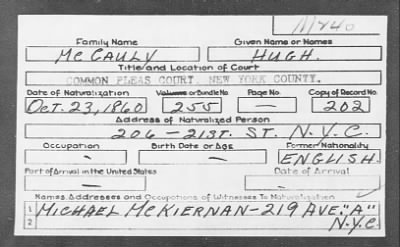 M240
Family Name Given Name or Names
McCAULY HUGH.
Title and Location of Court
COMMON PLEAS COURT, NEW YORK COUNTY.
Date of Naturalization Volume or Bundle No. Page No. Copy of Record No.
Oct. 23, 1860 255 — 202
Address of Naturalized Person
206 — 21ST. ST. N.Y.C.
Occupation Birth Date or Age Former Nationality
— — ENGLISH.
Port of Arrival in the United States Date of Arrival
— —
Names, Addresses and Occupations of Witnesses To Naturalization
1 MICHAEL McKIERNAN—219 AVE. "A"
2 N.Y.C.